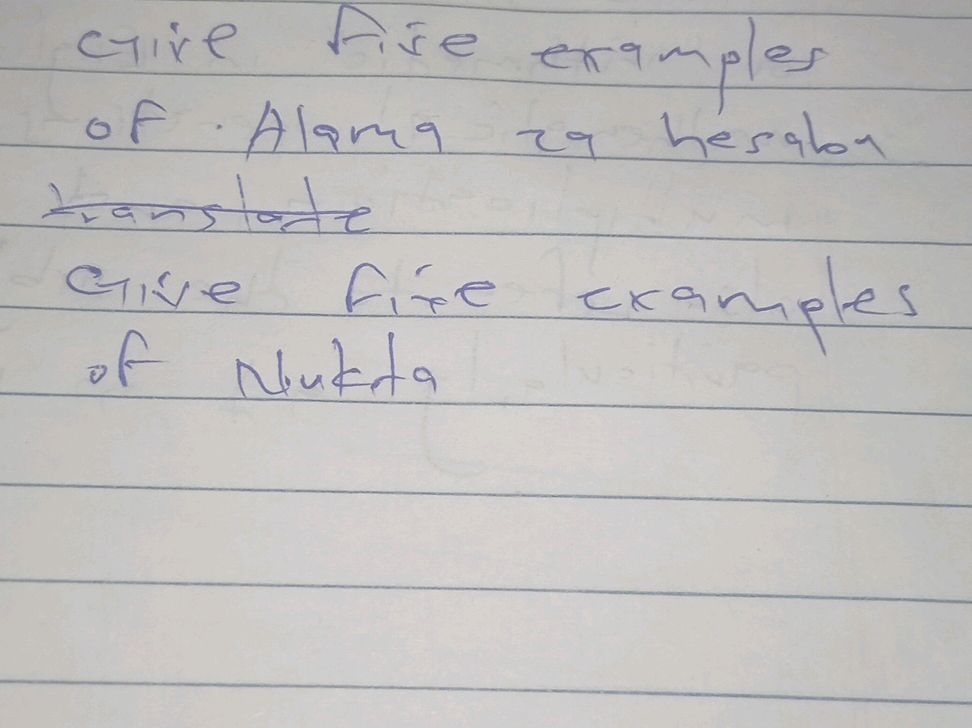 Give five examples
of . Alama za hesabu
translate
Give five examples
of Nukta